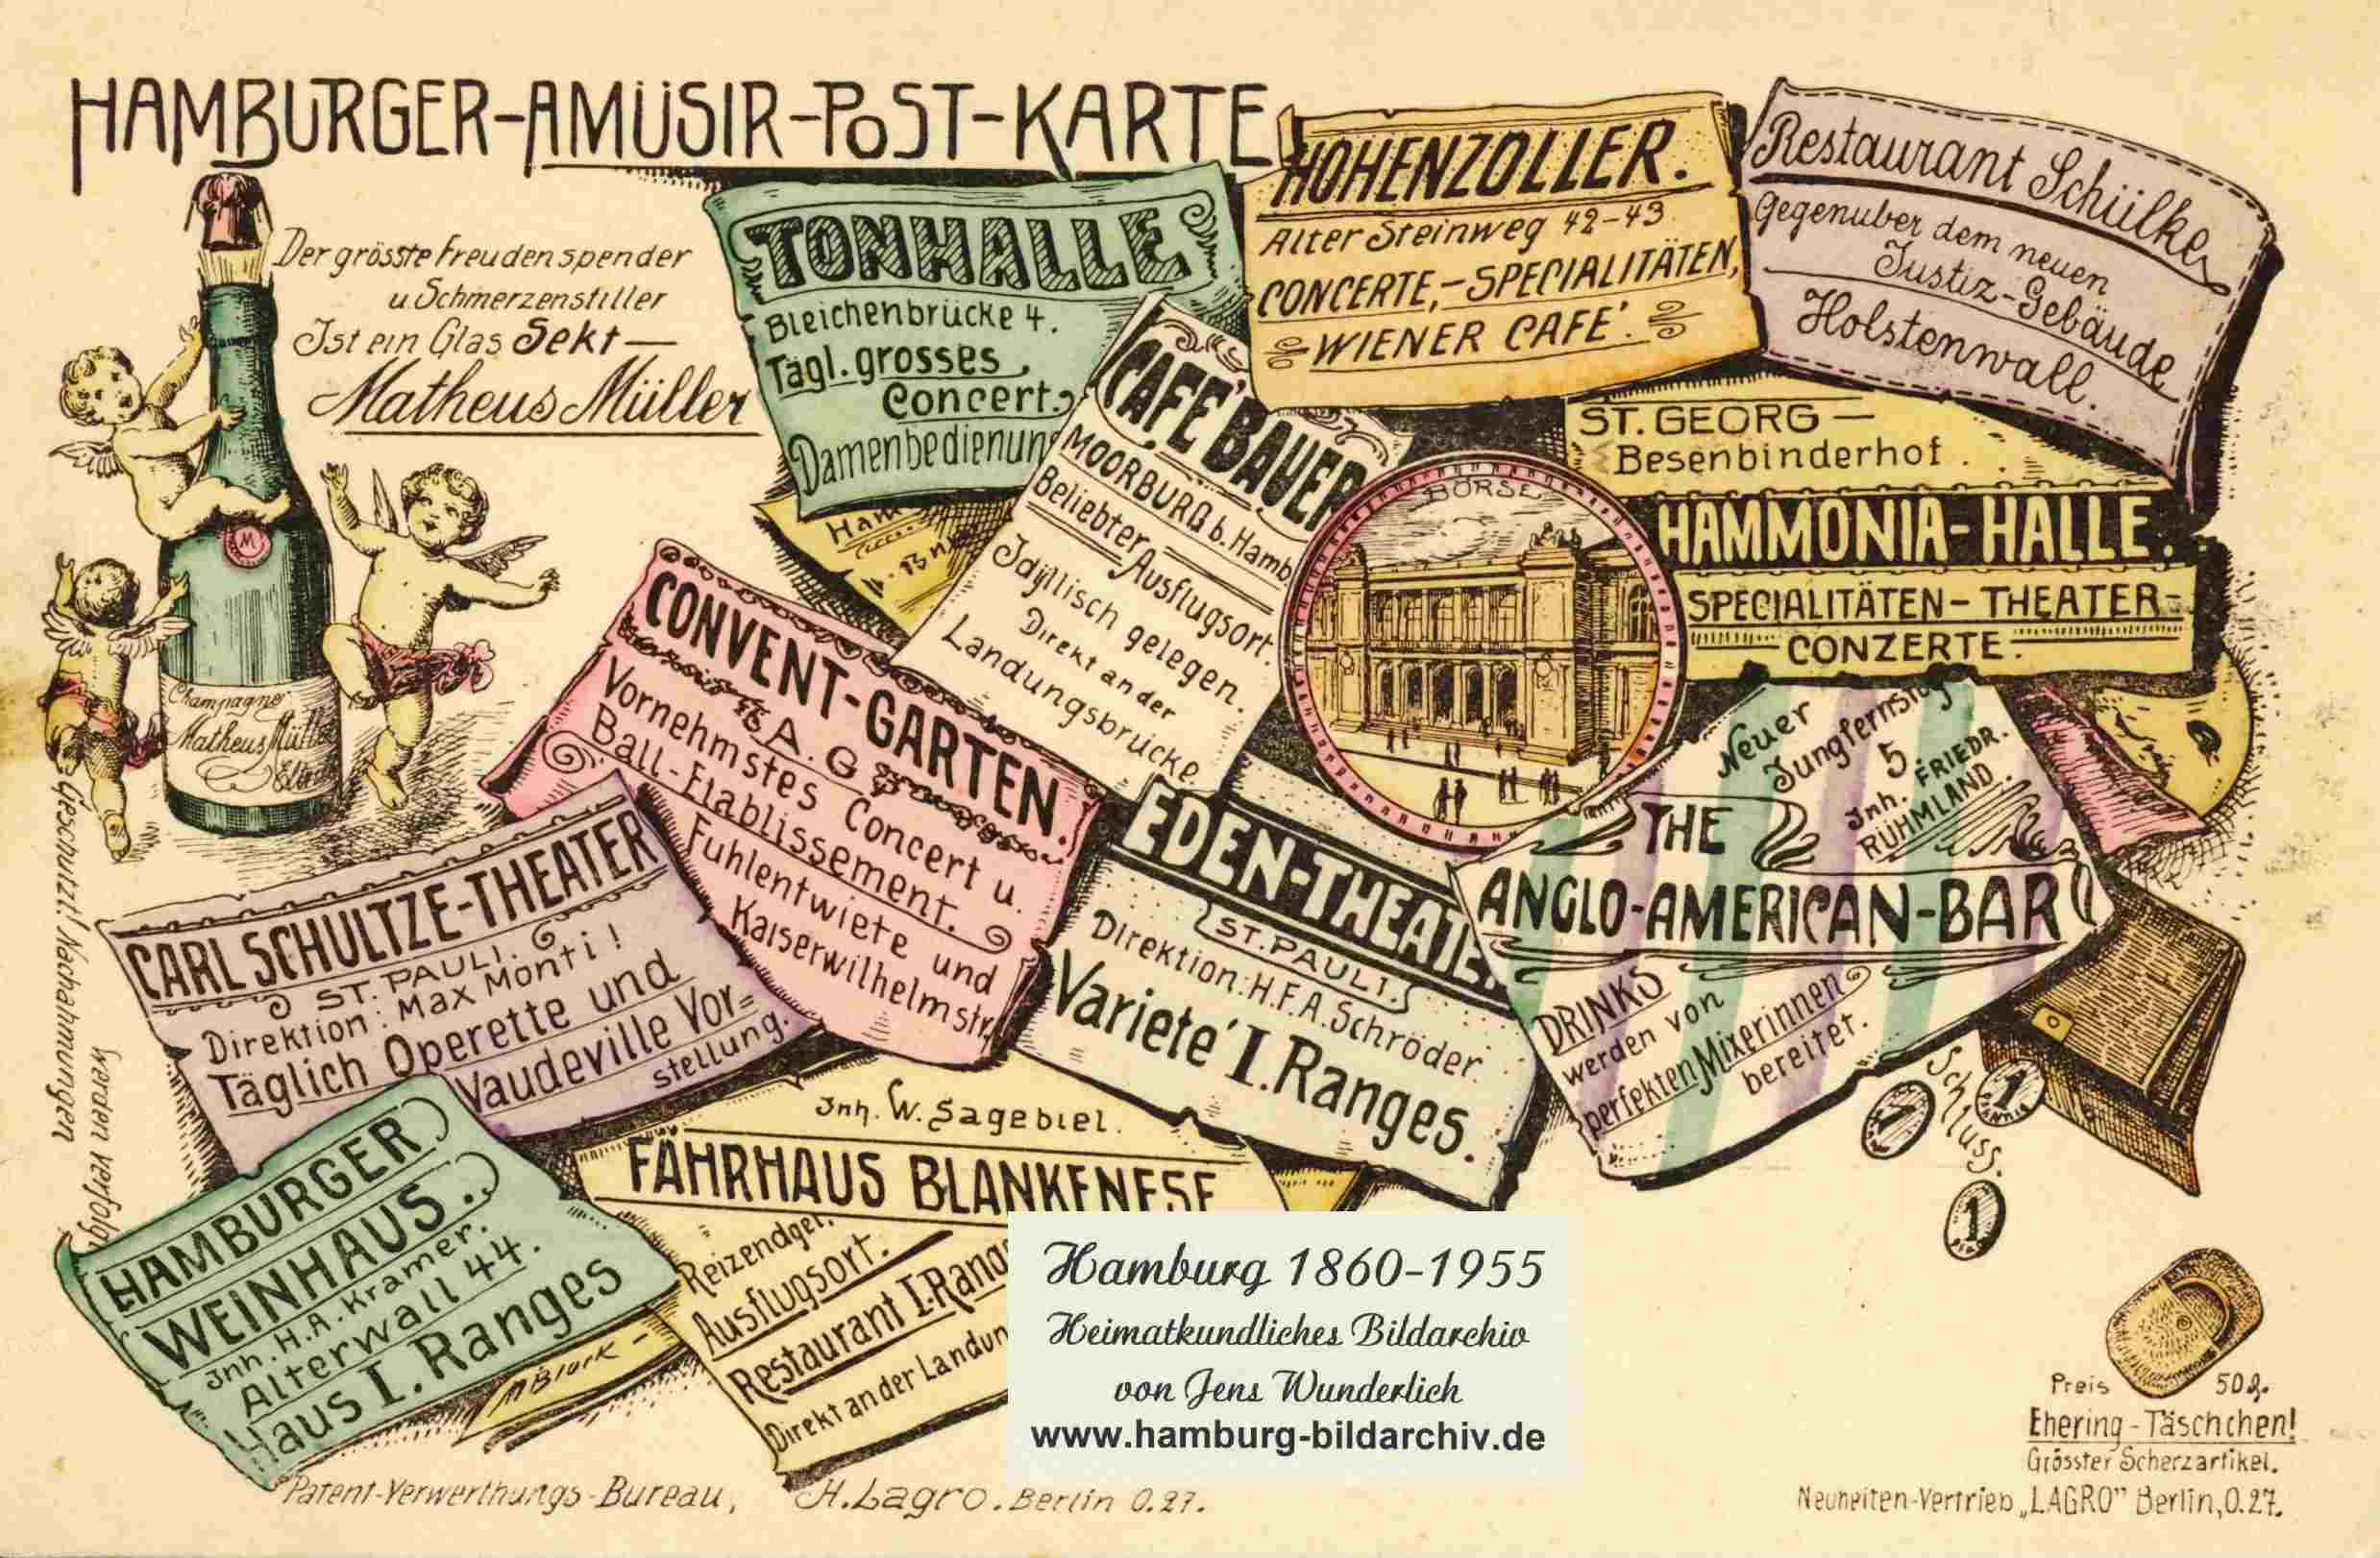 HAMBURGER-AMÜSIR-POST-KARTE
Der grösste Freudenspender
u. Schmerzenstiller
Ist ein Glas Sekt —
Matheus Müller
M
Champagne
Matheus Müller
TONHALLE
Bleichenbrücke 4.
Tägl. grosses
Concert.
Damenbedienung
HOHENZOLLER.
Alter Steinweg 42-43
CONCERTE,-SPECIALITÄTEN,
WIENER CAFÉ.
Restaurant Schülke
Gegenüber dem neuen
Justiz-Gebäude
Holstenwall.
CAFÉ BAUER
MOORBURG b. Hamb
Beliebter Ausflugsort.
Idyllisch gelegen.
Direkt an der
Landungsbrücke
Ham
BÖRSE
ST. GEORG —
Besenbinderhof.
HAMMONIA-HALLE.
SPECIALITÄTEN-THEATER-
CONZERTE.
CONVENT-GARTEN.
A. G.
Vornehmstes Concert u.
Ball-Etablissement.
Fuhlentwiete und
Kaiserwilhelmstr.
Neuer
Jungfernstieg
5
Inh. FRIEDR.
RUHMLAND.
THE
ANGLO-AMERICAN-BAR
DRINKS
werden von
perfekten Mixerinnen
bereitet.
EDEN-THEATE
ST. PAULI.
Direktion: H.F.A. Schröder.
Varieté I. Ranges.
CARL SCHULTZE-THEATER
ST. PAULI.
Direktion: Max Monti!
Täglich Operette und
Vaudeville Vor=
stellung.
HAMBURGER
WEINHAUS.
Inh. H.A. Kramer.
Alterwall 44.
Haus I. Ranges
Inh. W. Sagebiel.
FÄHRHAUS BLANKENESE
Reizendgel.
Ausflugsort.
Restaurant I. Rang
Direkt an der Landun
Schluss.
1
1
1
Geschützt! Nachahmungen
werden verfolgt
Patent-Verwerthungs-Bureau, H. Lagro. Berlin O.27.
Hamburg 1860-1955
Heimatkundliches Bildarchiv
von Jens Wunderlich
www.hamburg-bildarchiv.de
Preis 50 ₰.
Ehering-Täschchen!
Grösster Scherzartikel.
Neuheiten-Vertrieb „LAGRO" Berlin, O.27.